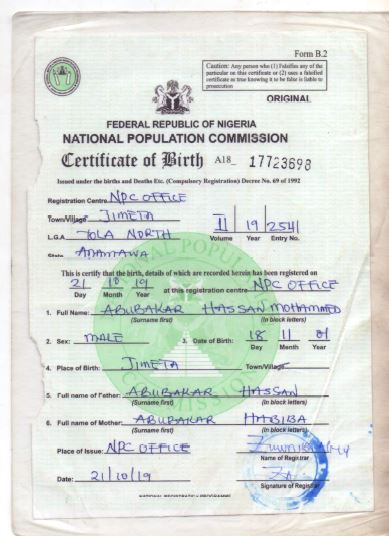 Form B.2
Caution: Any person who (1) Falsifies any of the
particular on this certificate or (2) uses a falsified
certificate as true knowing it to be false is liable to
prosecution
ORIGINAL
FEDERAL REPUBLIC OF NIGERIA
NATIONAL POPULATION COMMISSION
Certificate of Birth A18_ 17723698
Issued under the births and Deaths Etc. (Compulsory Registration) Decree No. 69 of 1992
Registration Centre NPC OFFICE
Town/Village JIMETA
L.G.A. YOLA NORTH
II 19 2541
Volume Year Entry No.
State ADAMAWA
This is certify that the birth, details of which are recorded herein has been registered on
21 10 19 at this registration centre NPC OFFICE
Day Month Year
1. Full Name: ABUBAKAR HASSAN MOHAMMED
(Surname first) (In block letters)
2. Sex: MALE 3. Date of Birth: 18 11 01
Day Month Year
4. Place of Birth: JIMETA Town/Village
5. Full name of Father: ABUBAKAR HASSAN
(Surname first) (In block letters)
6. Full name of Mother: ABUBAKAR HABIBA
(Surname first) (In block letters)
Place of Issue: NPC OFFICE
Name of Registrar
Date: 21/10/19
Signature of Registrar